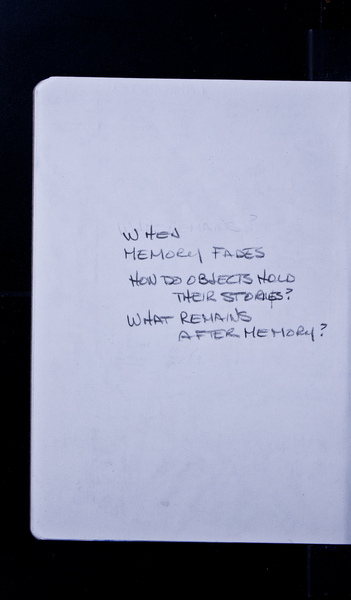 WHEN
MEMORY FADES
HOW DO OBJECTS HOLD
THEIR STORIES?
WHAT REMAINS
AFTER MEMORY?